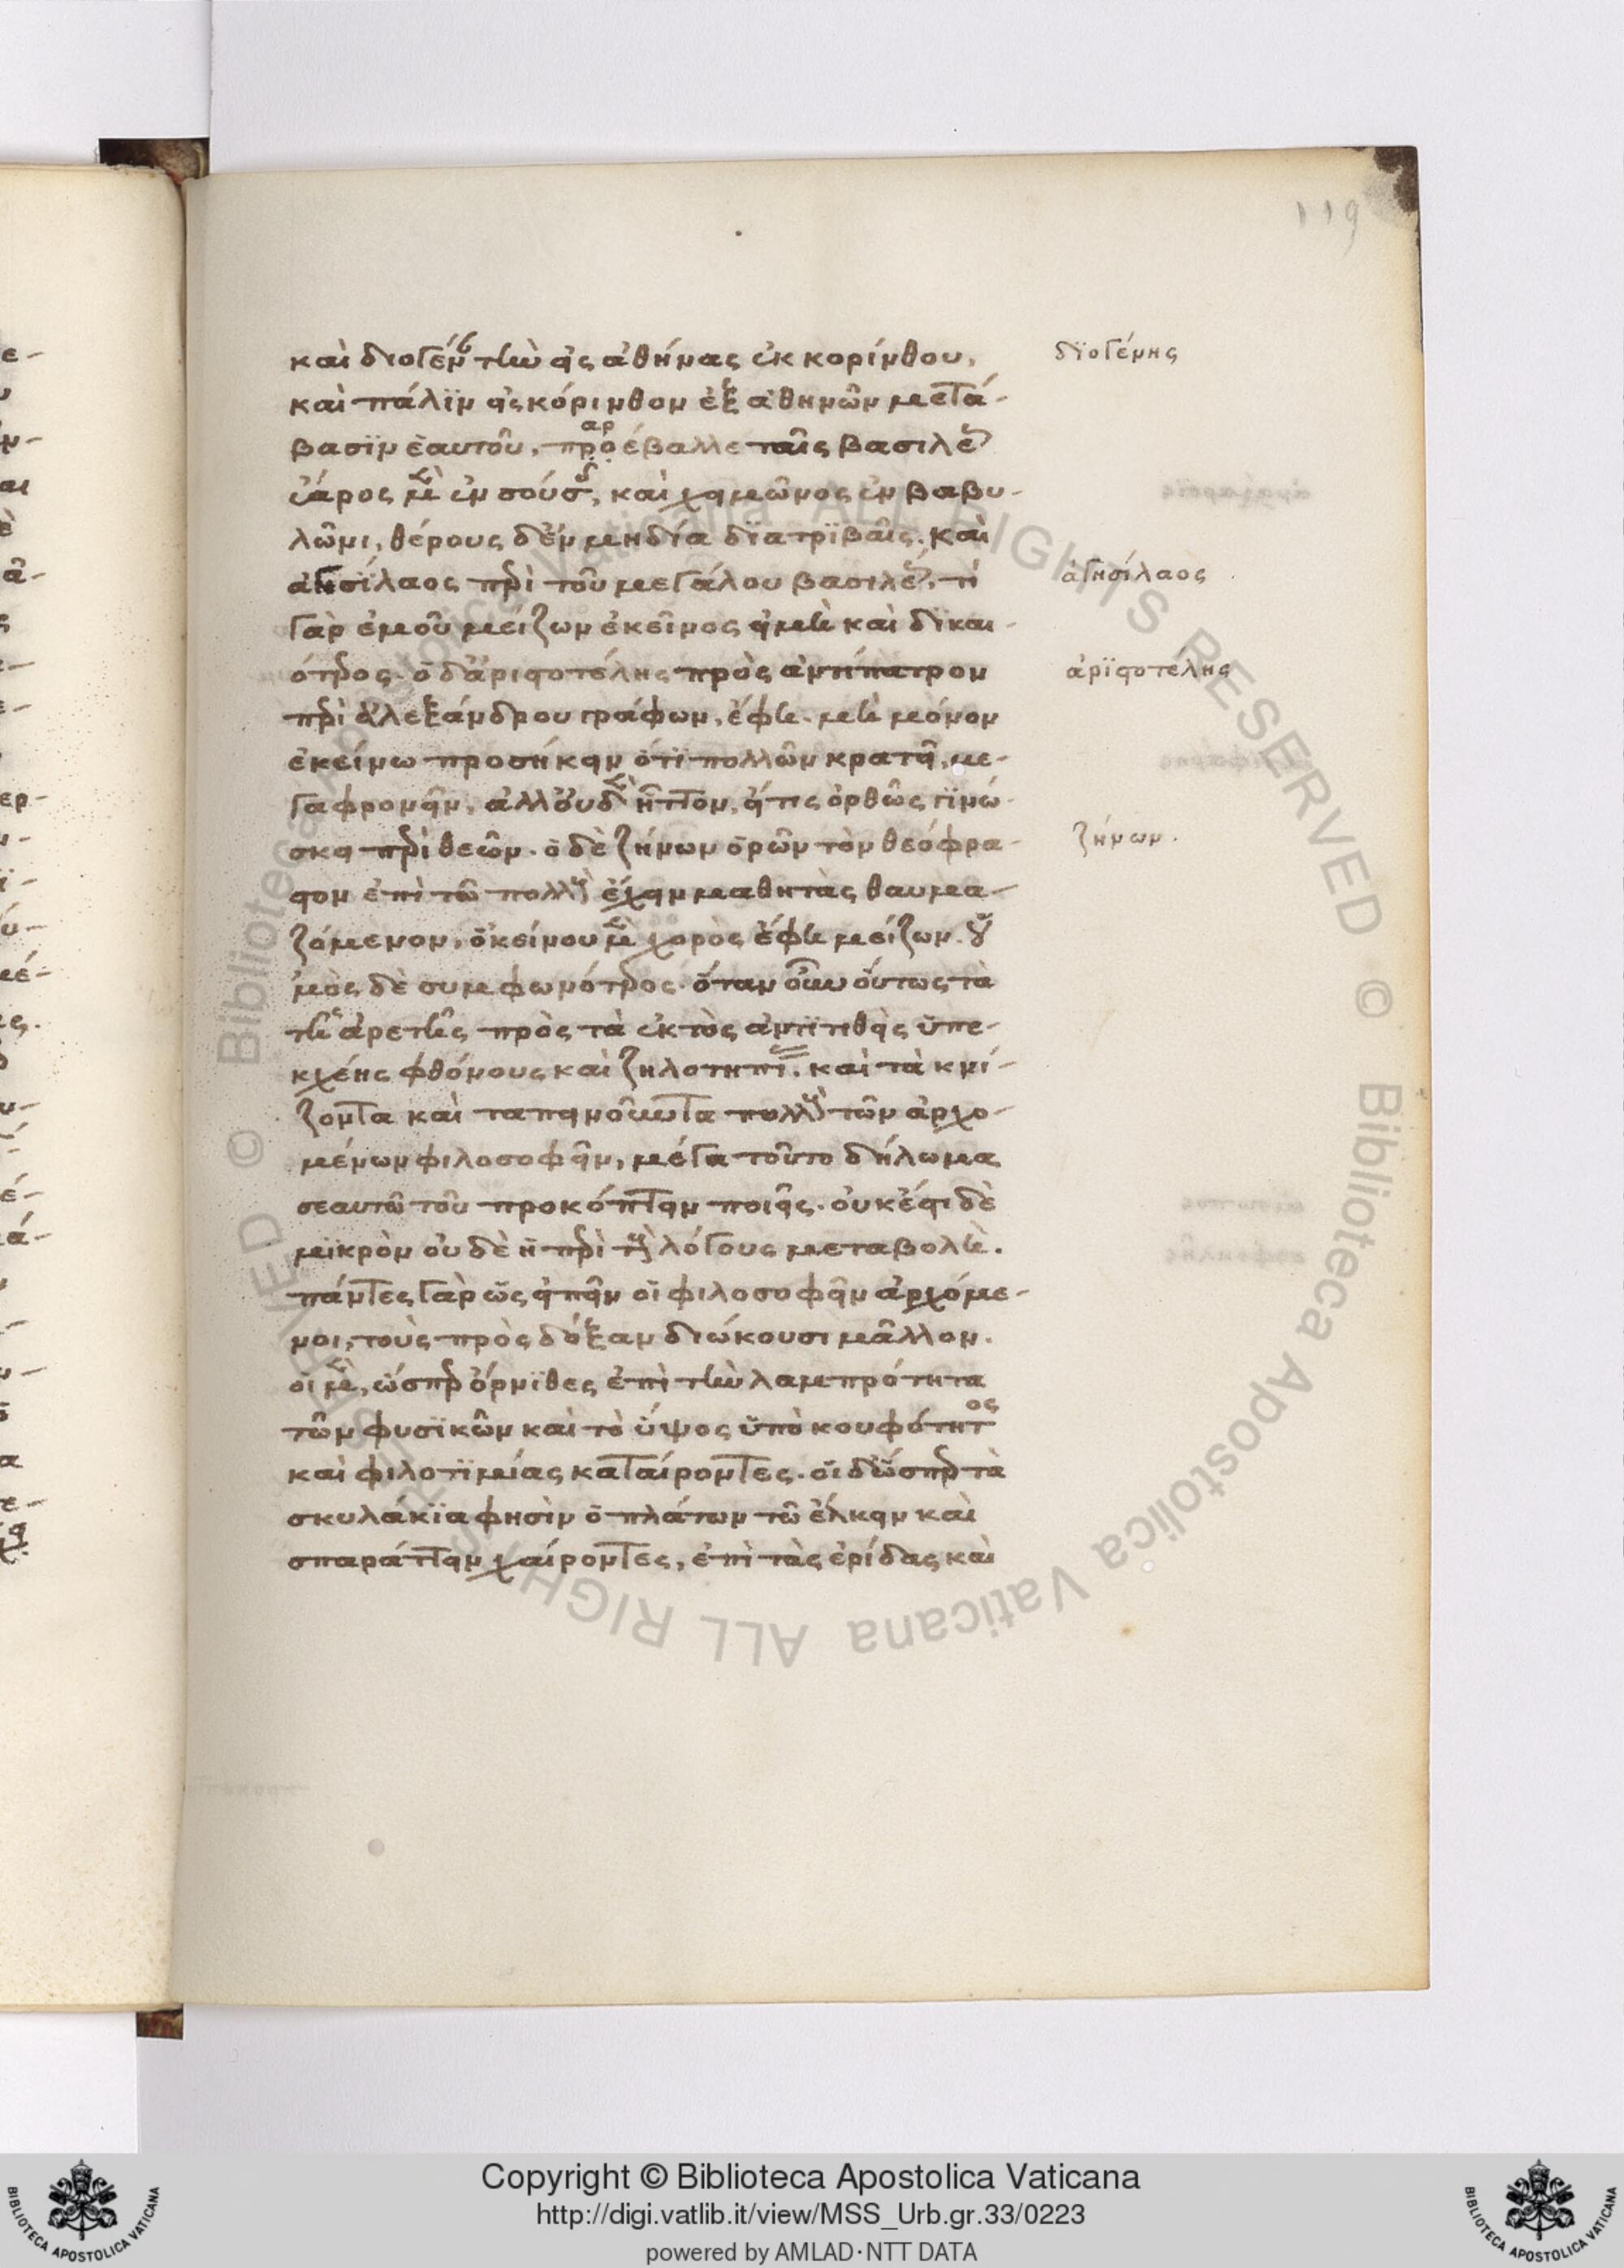 119
καὶ διογένης τὴν εἰς ἀθήνας ἐκ κορίνθου,
καὶ πάλϊν εἰς κόρινθον ἐξ ἀθηνῶν μετά-
βασϊν ἑαυτοῦ, προέβαλλε ταῖς βασιλέως
αρ
ἔαρος μὲν ἐν σούσοις, καὶ χειμῶνος ἐν βαβυ-
λῶνι, θέρους δ' ἐν μηδία δϊατρϊβαῖς. καὶ
ἀγησϊλαος περὶ τοῦ μεγάλου βασιλέως, τί
γὰρ ἐμοῦ μείζων ἐκεῖνος εἰ μὴ καὶ δϊκαι-
ότερος. ὁ δ' ἀριστοτέλης πρὸς ἀντίπατρον
περὶ ἀλεξάνδρου γράφων, ἔφη. μὴ μόνον
ἐκείνω προσήκειν ὅτϊ πολλῶν κρατεῖ, με-
γαφρονεῖν, ἀλλ' οὐδὲν ἧττον, εἴ τις ὀρθῶς γϊνώ-
σκει περὶ θεῶν. ὁ δὲ ζήνων ὁρῶν τὸν θεόφρα-
στον ἐπὶ τῶ πολλοὺς ἔχειν μαθητὰς θαυμα-
ζόμενον, ὁ κείνου μὲν χορὸς ἔφη μείζων. οὑ
μὸς δὲ συμφωνότερος. ὅταν οὖν οὕτως τὰ
τῆς ἀρετῆς πρὸς τὰ ἐκτὸς ἀντϊτιθεὶς ὑπε-
κχέης φθόνους καὶ ζηλοτυπίας. καὶ τὰ κνί-
ζοντα καὶ ταπεινοῦντα πολλοὺς τῶν ἀρχο-
μένων φιλοσοφεῖν, μέγα τοῦτο δήλωμα
σεαυτῶ τοῦ προκόπτειν ποιεῖς. οὐκ ἔστι δὲ
μϊκρὸν οὐδὲ ἡ περὶ τοὺς λόγους μεταβολή.
πάντες γὰρ ὡς εἰπεῖν οἱ φιλοσοφεῖν ἀρχόμε-
νοι, τοὺς πρὸς δόξαν διώκουσι μᾶλλον.
οἱ μὲν, ὥσπερ ὄρνϊθες ἐπὶ τὴν λαμπρότητα
τῶν φυσϊκῶν καὶ τὸ ὕψος ὑπὸ κουφότητος
καὶ φιλοτϊμίας καταίροντες. οἱ δ' ὥσπερ τὰ
σκυλάκϊα φησὶν ὁ πλάτων τῶ ἕλκειν καὶ
σπαράττειν χαίροντες, ἐπὶ τὰς ἐρίδας καὶ
δϊογένης
ἀγησίλαος
ἀρϊστοτελης
ζήνων.
Copyright © Biblioteca Apostolica Vaticana
http://digi.vatlib.it/view/MSS_Urb.gr.33/0223
powered by AMLAD·NTT DATA